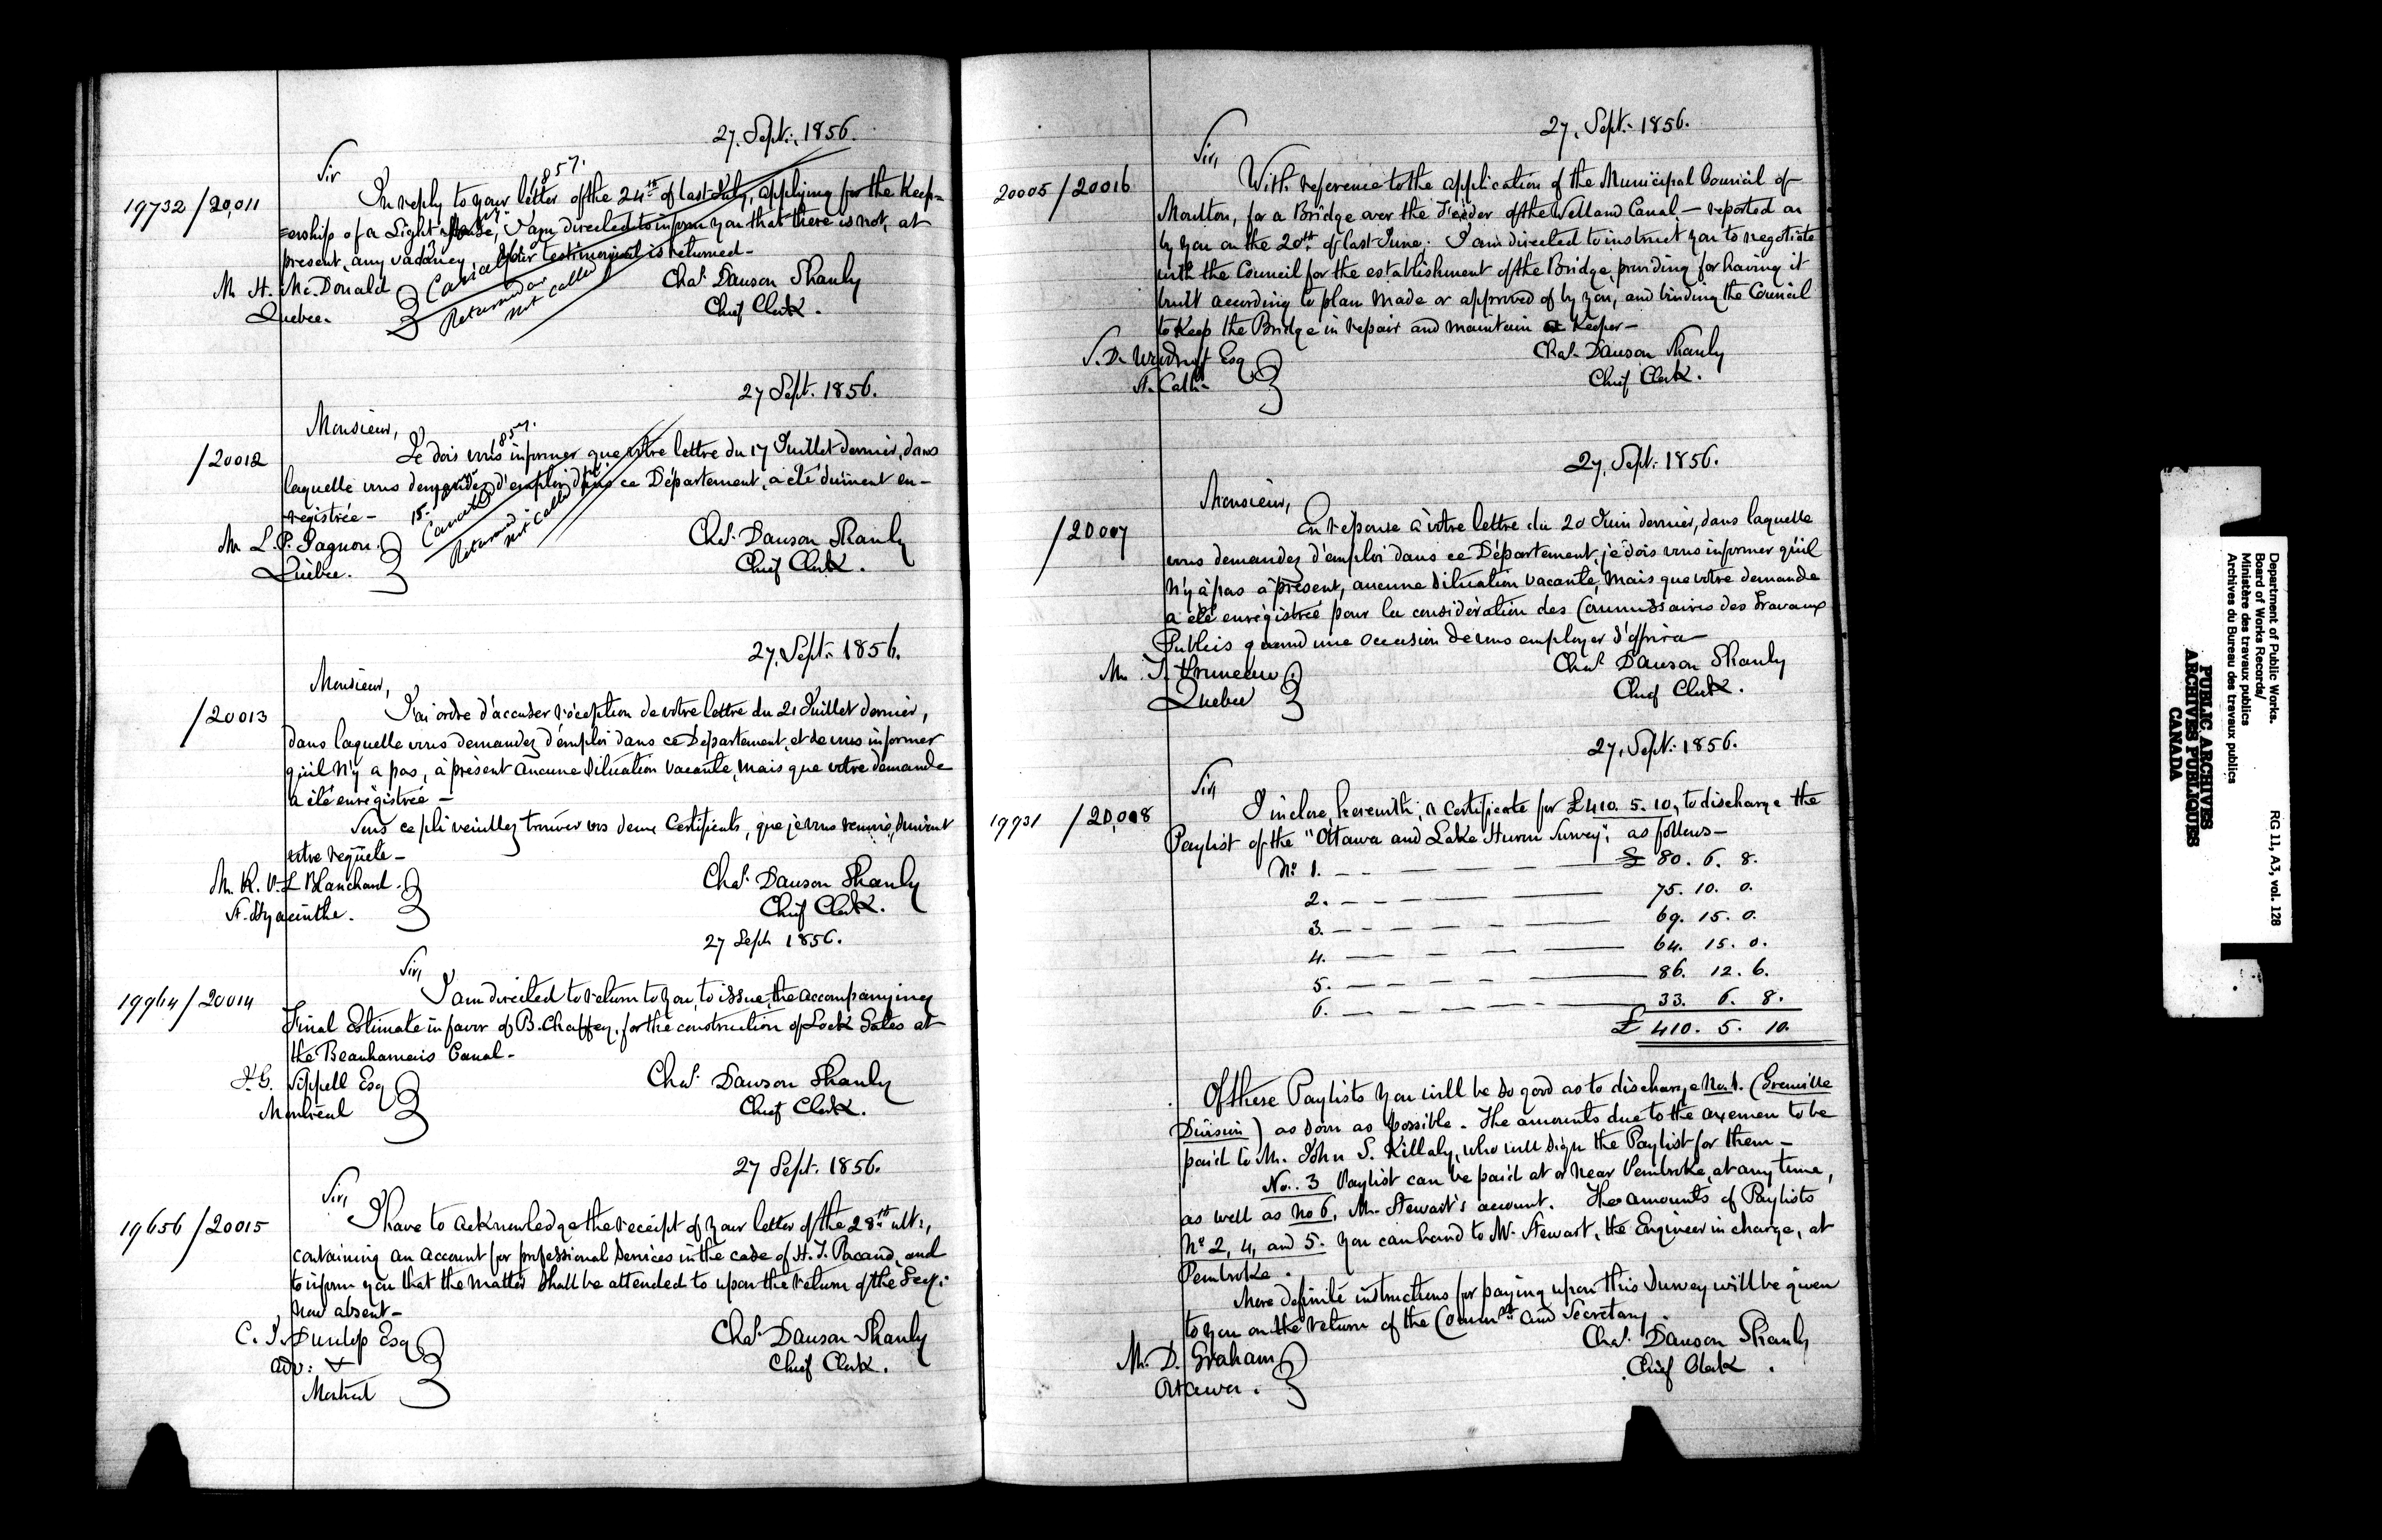 27, Sept:, 1856.
Sir
1857.
19732 / 20,011
In reply to your letter of the 24th of last July, applying for the Keep=
=ership of a Light House, I am directed to inform you that there is not, at
present, any vacancy, Your testimonial is returned -
Cancelled
Returned as
not called
M H. McDonald
Quebec.
Chas. Dawson Shanly
Chief Clerk.
27 Sept. 1856.
Monsieur,
1857.
/20012
Je dois vous informer que votre lettre du 17 Juillet dernier, dans
laquelle vous demandez d'emploi dans ce Département, a été dûment en-
registrée -
15.
Cancelled
Returned
not called
M L. P. Gagnon.
Québec.
Chas. Dawson Shanly
Chief Clerk.
27, Sept: 1856.
Monsieur,
/20013
J'ai ordre d'accuser réception de votre lettre du 21 Juillet dernier,
dans laquelle vous demandez d'emploi dans ce Département, et de vous informer
qu'il n'y a pas, à présent aucune situation vacante, mais que votre demande
a été enrégistrée -
Sous ce pli veuillez trouver vos deux Certificats, que je vous renvoie, suivant
votre requête -
M. R. V. L Blanchard.
St. Hyacinthe.
Chas. Dawson Shanly
Chief Clerk.
27 Sept 1856.
Sir,
19964/20014
I am directed to return to you, to issue, the accompanying
Final Estimate in favor of B. Chaffey, for the construction of Lock Gates at
the Beauharnais Canal -
J. G. Sippell Esq
Montreal
Chas. Dawson Shanly
Chief Clerk.
27 Sept. 1856.
Sir,
19656/20015
I have to acknowledge the receipt of your letter of the 28th ult:,
containing an account for professional services in the case of H. J. Pacaud, and
to inform you that the matter shall be attended to upon the return of the Secy:
now absent -
C. J. Dunlop Esq
Adv: &
Montreal
Chas. Dawson Shanly
Chief Clerk.
27, Sept: 1856.
Sir,
20005/20016
With reference to the application of the Municipal Council of
Moulton, for a Bridge over the Feeder of the Welland Canal, - reported on
by you on the 20th of last June; I am directed to instruct you to negotiate
with the Council for the establishment of the Bridge, providing for having it
built according to plan made or approved of by you, and binding the Council
to keep the Bridge in repair and maintain a Keeper -
S. D. Woodruff Esq
St. Cath:
Chas. Dawson Shanly
Chief Clerk.
27, Sept: 1856.
Monsieur,
/20007
En réponse à votre lettre du 20 Juin dernier, dans laquelle
vous demandez d'emploi dans ce Département, je dois vous informer qu'il
n'y a pas à présent, aucune situation vacante, mais que votre demande
a été enrégistrée pour la considération des Commissaires des Travaux
Publics quand une occasion de vous employer s'offrira -
M. J. Bruneau
Quebec
Chas. Dawson Shanly
Chief Clerk.
27, Sept: 1856.
Sir,
19931 / 20,008
I inclose, herewith, a Certificate for £410. 5. 10, to discharge the
Paylist of the "Ottawa and Lake Huron Survey", as follows -
No. 1. - - - - £ 80. 6. 8.
2. - - - - 75. 10. 0.
3. - - - - 69. 15. 0.
4. - - - - 64. 15. 0.
5. - - - - 86. 12. 6.
6. - - - - 33. 6. 8.
£ 410. 5. 10.
Of these Paylists you will be so good as to discharge No. 1. (Grenville
Division) as soon as possible. The amounts due to the axemen to be
paid to Mr. John S. Killaly, who will sign the Paylist for them -
No. 3 Paylist can be paid at or near Pembroke, at any time,
as well as No 6, Mr. Stewart's account. The amounts of Paylists
No 2, 4, and 5. you can hand to Mr Stewart, the Engineer in charge, at
Pembroke.
More definite instructions for paying upon this Survey will be given
to you on the return of the Commr and Secretary.
Mr. D. Graham
Ottawa.
Chas. Dawson Shanly
Chief Clerk.
Department of Public Works.
Board of Works Records/
Ministère des travaux publics
Archives du Bureau des travaux publics
RG 11, A3, vol. 128
PUBLIC ARCHIVES
ARCHIVES PUBLIQUES
CANADA